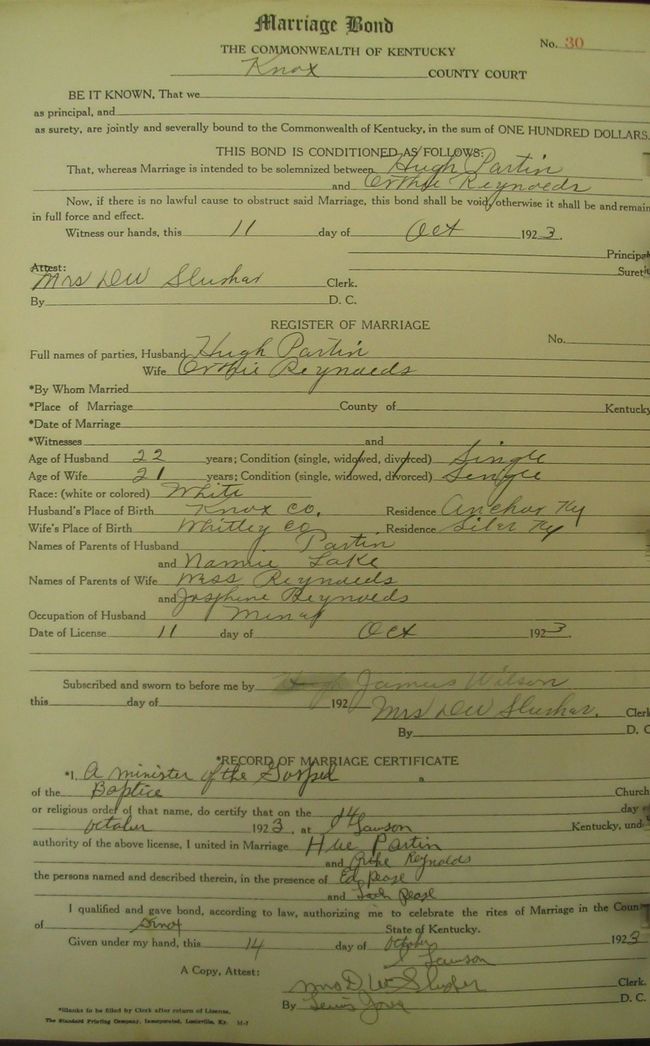 Marriage Bond
No. 30
THE COMMONWEALTH OF KENTUCKY
Knox COUNTY COURT
BE IT KNOWN, That we
as principal, and
as surety, are jointly and severally bound to the Commonwealth of Kentucky, in the sum of ONE HUNDRED DOLLARS.
THIS BOND IS CONDITIONED AS FOLLOWS:
That, whereas Marriage is intended to be solemnized between Hugh Partin
and Reynolds
Now, if there is no lawful cause to obstruct said Marriage, this bond shall be void, otherwise it shall be and remain
in full force and effect.
Witness our hands, this 11 day of Oct 1923.
Principal
Surety
Attest:
Mrs DW Slusher Clerk.
By D. C.
REGISTER OF MARRIAGE
No.
Full names of parties, Husband Hugh Partin
Wife Reynolds
*By Whom Married
*Place of Marriage County of Kentucky
*Date of Marriage
*Witnesses and
Age of Husband 22 years; Condition (single, widowed, divorced) Single
Age of Wife 21 years; Condition (single, widowed, divorced) Single
Race: (white or colored) White
Husband's Place of Birth Knox Co. Residence Anchor Ky
Wife's Place of Birth Whitley Co Residence Siler Ky
Names of Parents of Husband Partin
and Nannie Lake
Names of Parents of Wife Wess Reynolds
and Josphine Reynolds
Occupation of Husband Miner
Date of License 11 day of Oct 1923.
Subscribed and sworn to before me by James Wilson
this day of 192
Mrs DW Slusher. Clerk
By D. C
*RECORD OF MARRIAGE CERTIFICATE
*I, A minister of the Gospel a
of the Baptice Church
or religious order of that name, do certify that on the 14 day
October 1923, at Kentucky, und
authority of the above license, I united in Marriage Hue Partin
and Reynolds
the persons named and described therein, in the presence of Ed Pease
and Pease
I qualified and gave bond, according to law, authorizing me to celebrate the rites of Marriage in the Coun
of Knox State of Kentucky.
Given under my hand, this 14 day of October 1923
Lawson
A Copy, Attest:
Mrs D. W Slusher Clerk.
By D. C.
*Blanks to be filled by Clerk after return of License.
The Standard Printing Company, Incorporated, Louisville, Ky.